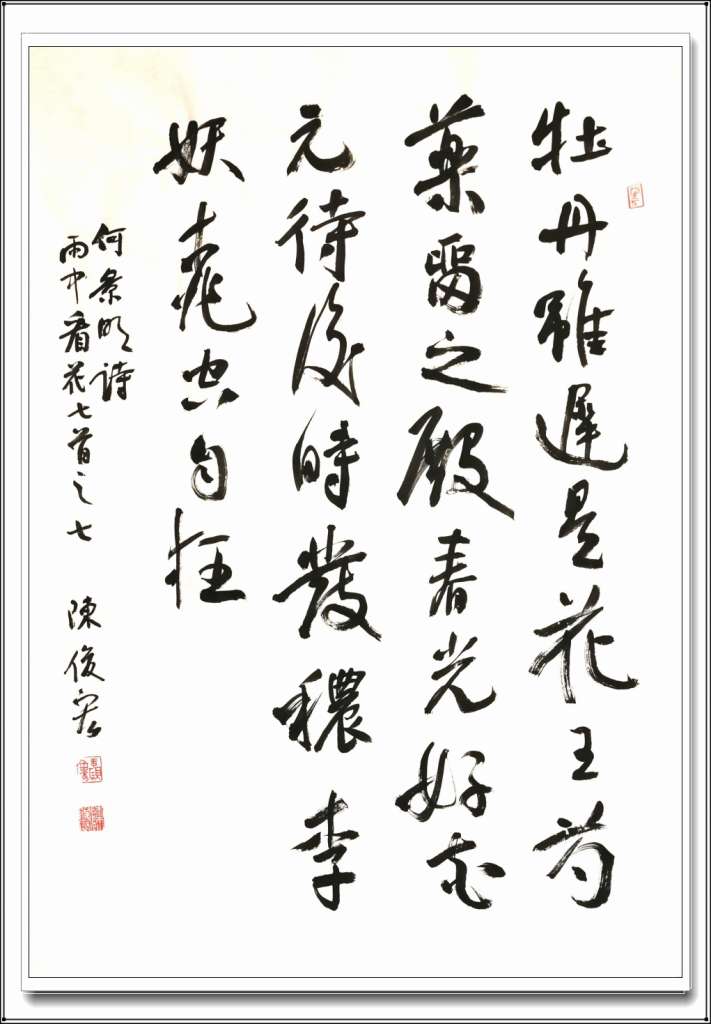 牡丹雖遲是花王芍
藥留之殿春光好花
元待後時發穠李
妖桃空自狂
何景明詩
雨中看花七首之七
陳俊宏